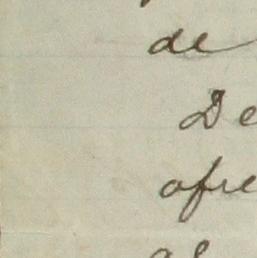 de
De
ofre
as